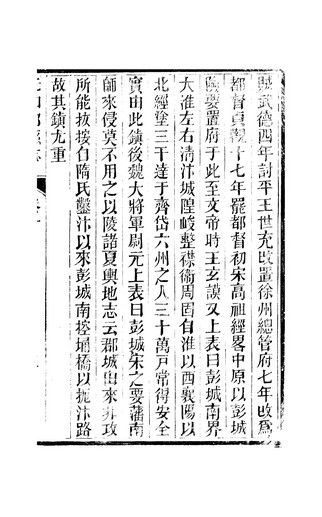 賊武德四年討平王世充改置徐州總管府七年改爲
都督貞觀十七年罷都督初宋高祖經畧中原以彭城
險要置府于此至文帝時王玄謨又上表曰彭城南界
大淮左右清汴城隍峻整襟衛周固自淮以西襄陽以
北經塗三千達于齊岱六州之人三十萬戸常得安全
實由此鎮後魏大將軍尉元上表曰彭城宋之要藩南
師來侵莫不用之以陵諸夏輿地志云郡城由來非攻
所能拔按自隋氏鑿汴以來彭城南控埇橋以扼汴路
故其鎮尤重